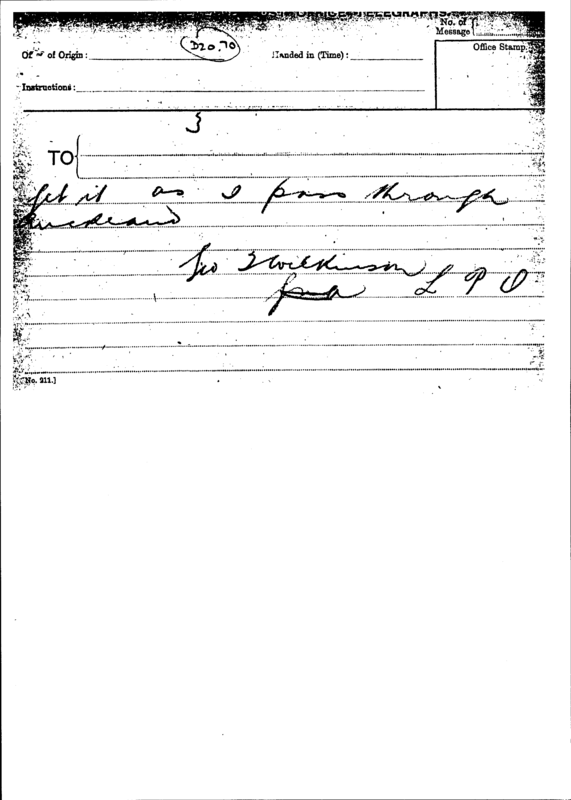 POST OFFICE TELEGRAPHS.
No. of
Message
D20.70
Office of Origin:
Handed in (Time):
Office Stamp.
Instructions:
3
TO
get it as I pass through
Auckland
Geo T Wilkinson
L P O
No. 211.]